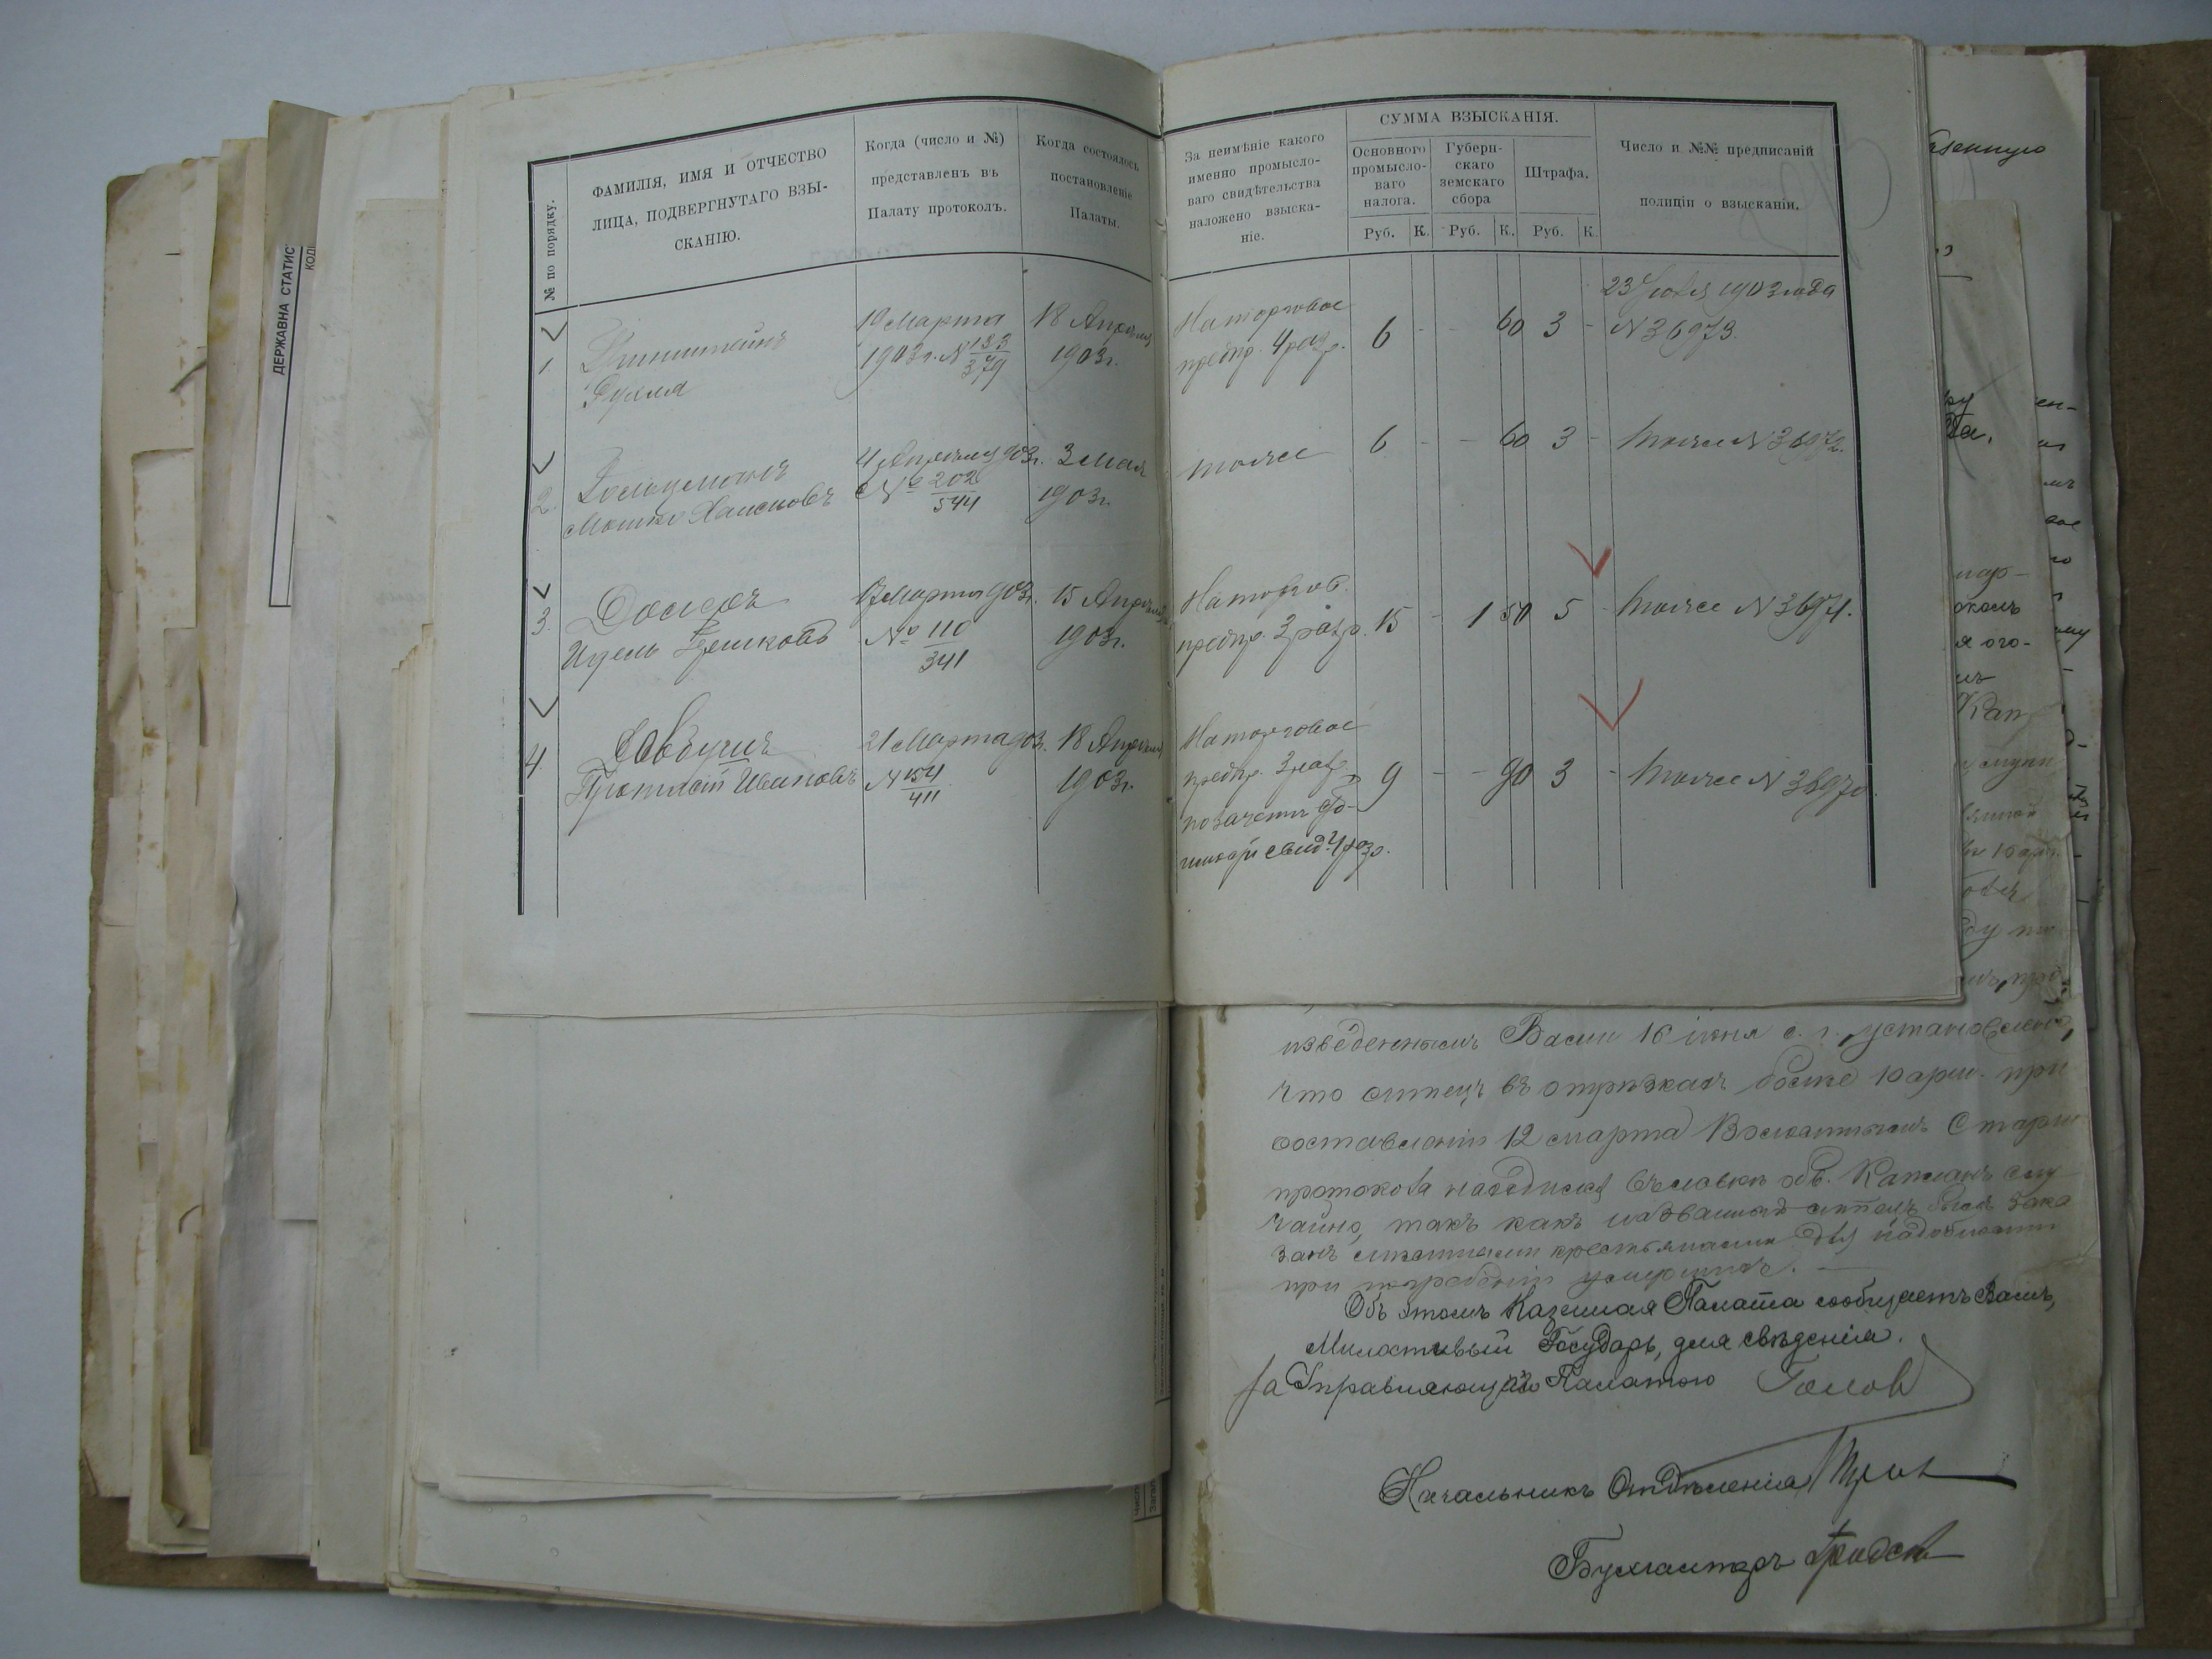 ДЕРЖАВНА СТАТИС
КОД
№ по порядку.
ФАМИЛІЯ, ИМЯ И ОТЧЕСТВО
ЛИЦА, ПОДВЕРГНУТАГО ВЗЫ-
СКАНІЮ.
Когда (число и №)
представленъ въ
Палату протоколъ.
Когда состоялось
постановленіе
Палаты.
За неимѣніе какого
именно промысло-
ваго свидѣтельства
наложено взыска-
ніе.
СУММА ВЗЫСКАНІЯ.
Основного
промысло-
ваго
налога.
Губерн-
скаго
земскаго
сбора
Штрафа.
Руб. К. Руб. К. Руб. К.
Число и №№ предписаній
полиціи о взысканіи.
1
Рухля
19 Марта
1903 г. № 133/379
18 Апрѣля
1903 г.
На торговое
предпр. 4 разр.
6 - - 60 3 -
23 1903 года
№ 36973.
2.
Мошко Хаимовъ
4 Апрѣля 903 г.
№ 202/544
3 Мая
1903 г.
тоже
6 - - 60 3 -
тоже № 36972.
3.
Ицель
17 Марта 903 г.
№ 110/341
15 Апрѣля
1903 г.
На торгов.
предпр. 3 разр.
15 - 1 50 5 -
тоже № 36971.
4.
Савдучъ
Ивановъ
21 Марта 903 г.
№ 154/411
18 Апрѣля
1903 г.
На торговое
предпр. 3 разр.
по зачетѣ
свид. 4 разр.
9 - - 90 3 -
тоже № 36970.
изведеннымъ Вами 16 іюня с. г. установлено,
что ситецъ въ отрѣзкахъ болѣе 10 арш. при
составленіи 12 марта Волостнымъ Старш
протокола находился въ лавкѣ об. Капланъ слу
чайно, такъ какъ названный ситецъ былъ зака
занъ мѣстными крестьянами для надобности
при погребеніи умершихъ.
Объ этомъ Казенная Палата сообщаетъ Вамъ,
Милостивый Государь, для свѣдѣнія.
За Управляющаго Палатою
Начальникъ Отдѣленія
Бухгалтеръ